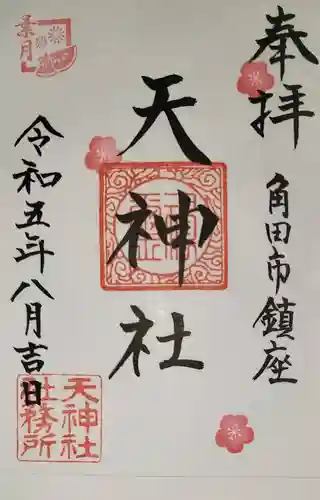 奉拝
角田市鎮座
天神社
令和五年八月吉日
葉月
天神社
社務所